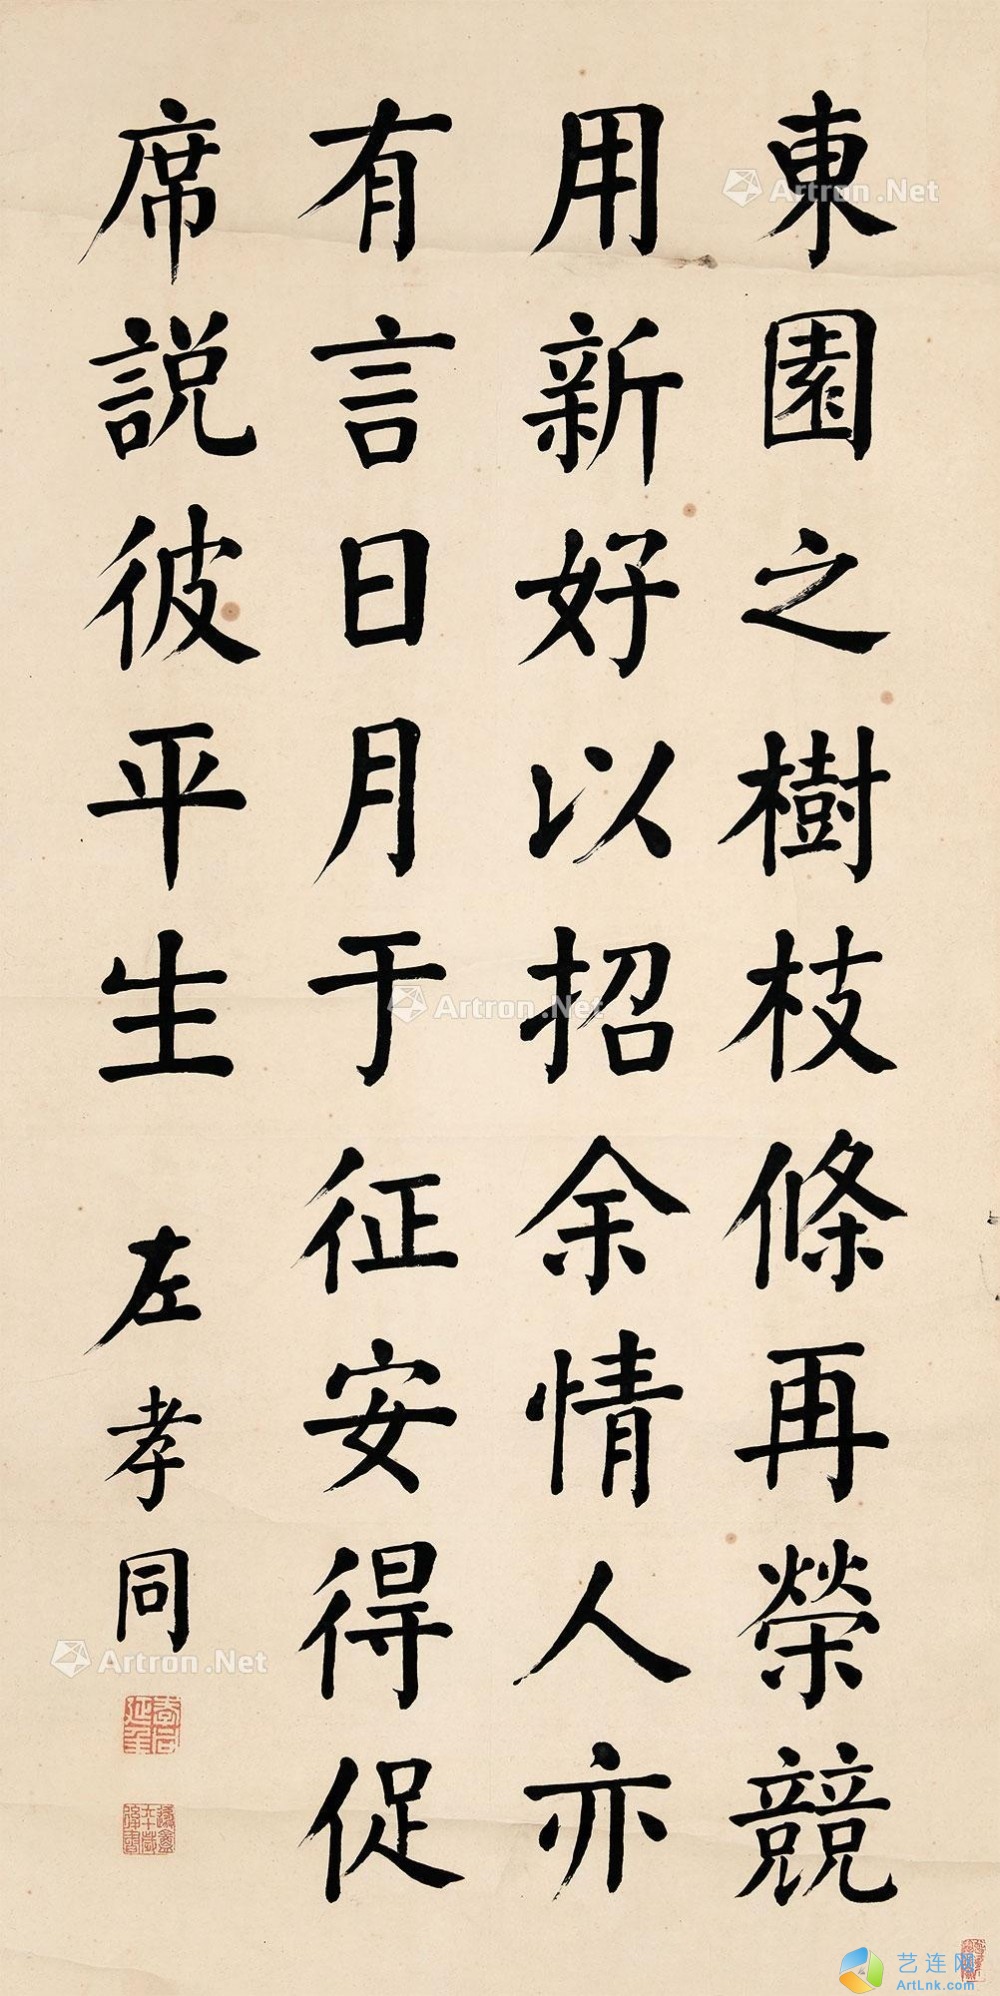 東園之樹枝條再榮競
用新好以招余情人亦
有言日月于征安得促
席説彼平生
左孝同
Artron.Net
Artron.Net
Artron.Net
艺连网
ArtLnk.com